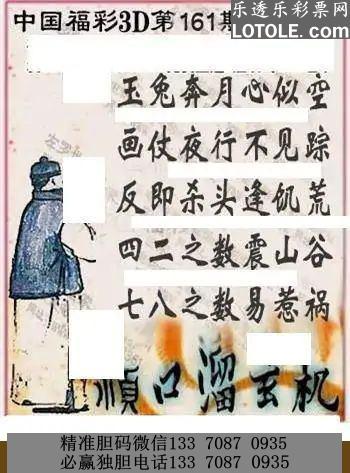 中国福彩3D第161期
乐透乐彩票网
LOTOLE.COM
玉兔奔月心似空
画仗夜行不见踪
反即杀头逢饥荒
四二之数震山谷
七八之数易惹祸
顺口溜玄机
精准胆码微信133 7087 0935
必赢独胆电话133 7087 0935